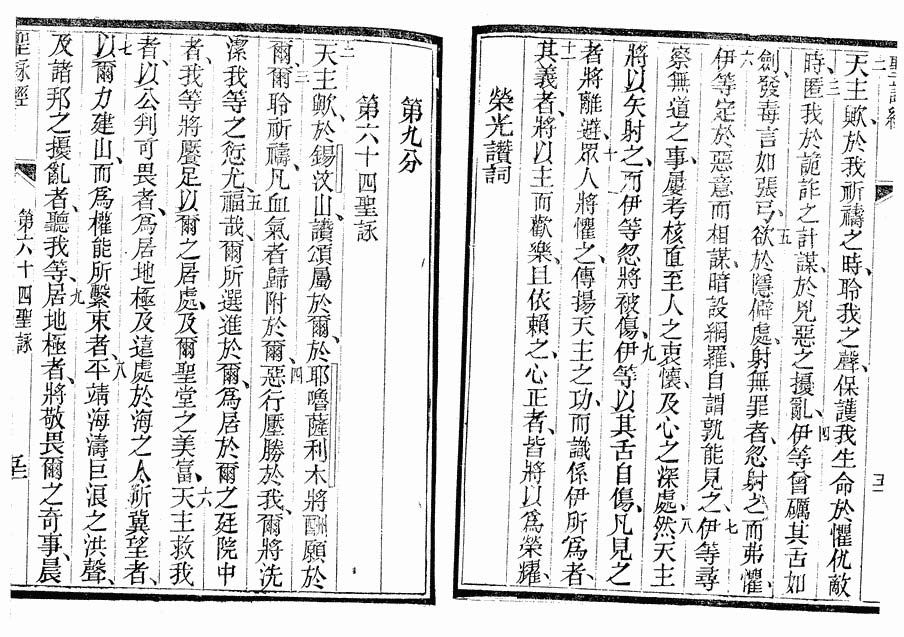 聖詠經
二天主歟於我祈禱之時、聆我之聲、保護我生命於懼仇敵
時、三匿我於詭詐之計謀、於兇惡之擾亂、四伊等曾礪其舌如
劍、發毒言如張弓、五欲於隱僻處射無罪者、忽射之而弗懼、
六伊等定於惡意而相謀暗設網羅、自謂孰能見之、七伊等尋
察無道之事、屢考核直至人之衷懷、及心之深處、八然天主
將以矢射之、而伊等忽將被傷、九伊等以其舌自傷、凡見之
者將離避、十眾人將懼之、傳揚天主之功、而識係伊所為者、
十一其義者、將以主而歡樂、且依賴之、心正者、皆將以為榮耀、
榮光讚詞
第九分
第六十四聖詠
二天主歟、於錫汶山、讚頌屬於爾、於耶嚕薩利木將酬願於
爾、三爾聆祈禱、凡血氣者歸附於爾、四惡行壓勝於我、爾將洗
潔我等之愆尤、五福哉、爾所選進於爾、為居於爾之廷院中
者、我等將饜足以爾之居處、及爾聖堂之美富、六天主救我
者、以公判可畏者、為居地極及遠處於海之人所冀望者、
七以爾力建山、而為權能所繫束者、八平靖海濤巨浪之洪聲、
及諸邦之擾亂者、聽我等、九居地極者、將敬畏爾之奇事、晨
聖詠經
第六十四聖詠